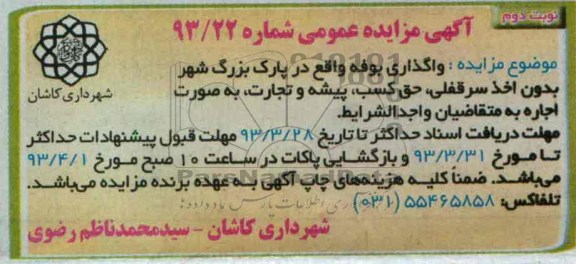 نوبت دوم
آگهی مزایده عمومی شماره ۹۳/۲۲
شهرداری کاشان
موضوع مزایده : واگذاری بوفه واقع در پارک بزرگ شهر
بدون اخذ سرقفلی، حق کسب، پیشه و تجارت، به صورت
اجاره به متقاضیان واجدالشرایط.
مهلت دریافت اسناد حداکثر تا تاریخ ۹۳/۳/۲۸ مهلت قبول پیشنهادات حداکثر
تا مورخ ۹۳/۳/۳۱ و بازگشایی پاکات در ساعت ۱۰ صبح مورخ ۹۳/۴/۱
می‌باشد. ضمناً کلیه هزینه‌های چاپ آگهی به عهده برنده مزایده می‌باشد.
تلفاکس: ۵۵۴۶۵۸۵۸ (۰۳۱)
شهرداری کاشان - سیدمحمدناظم رضوی